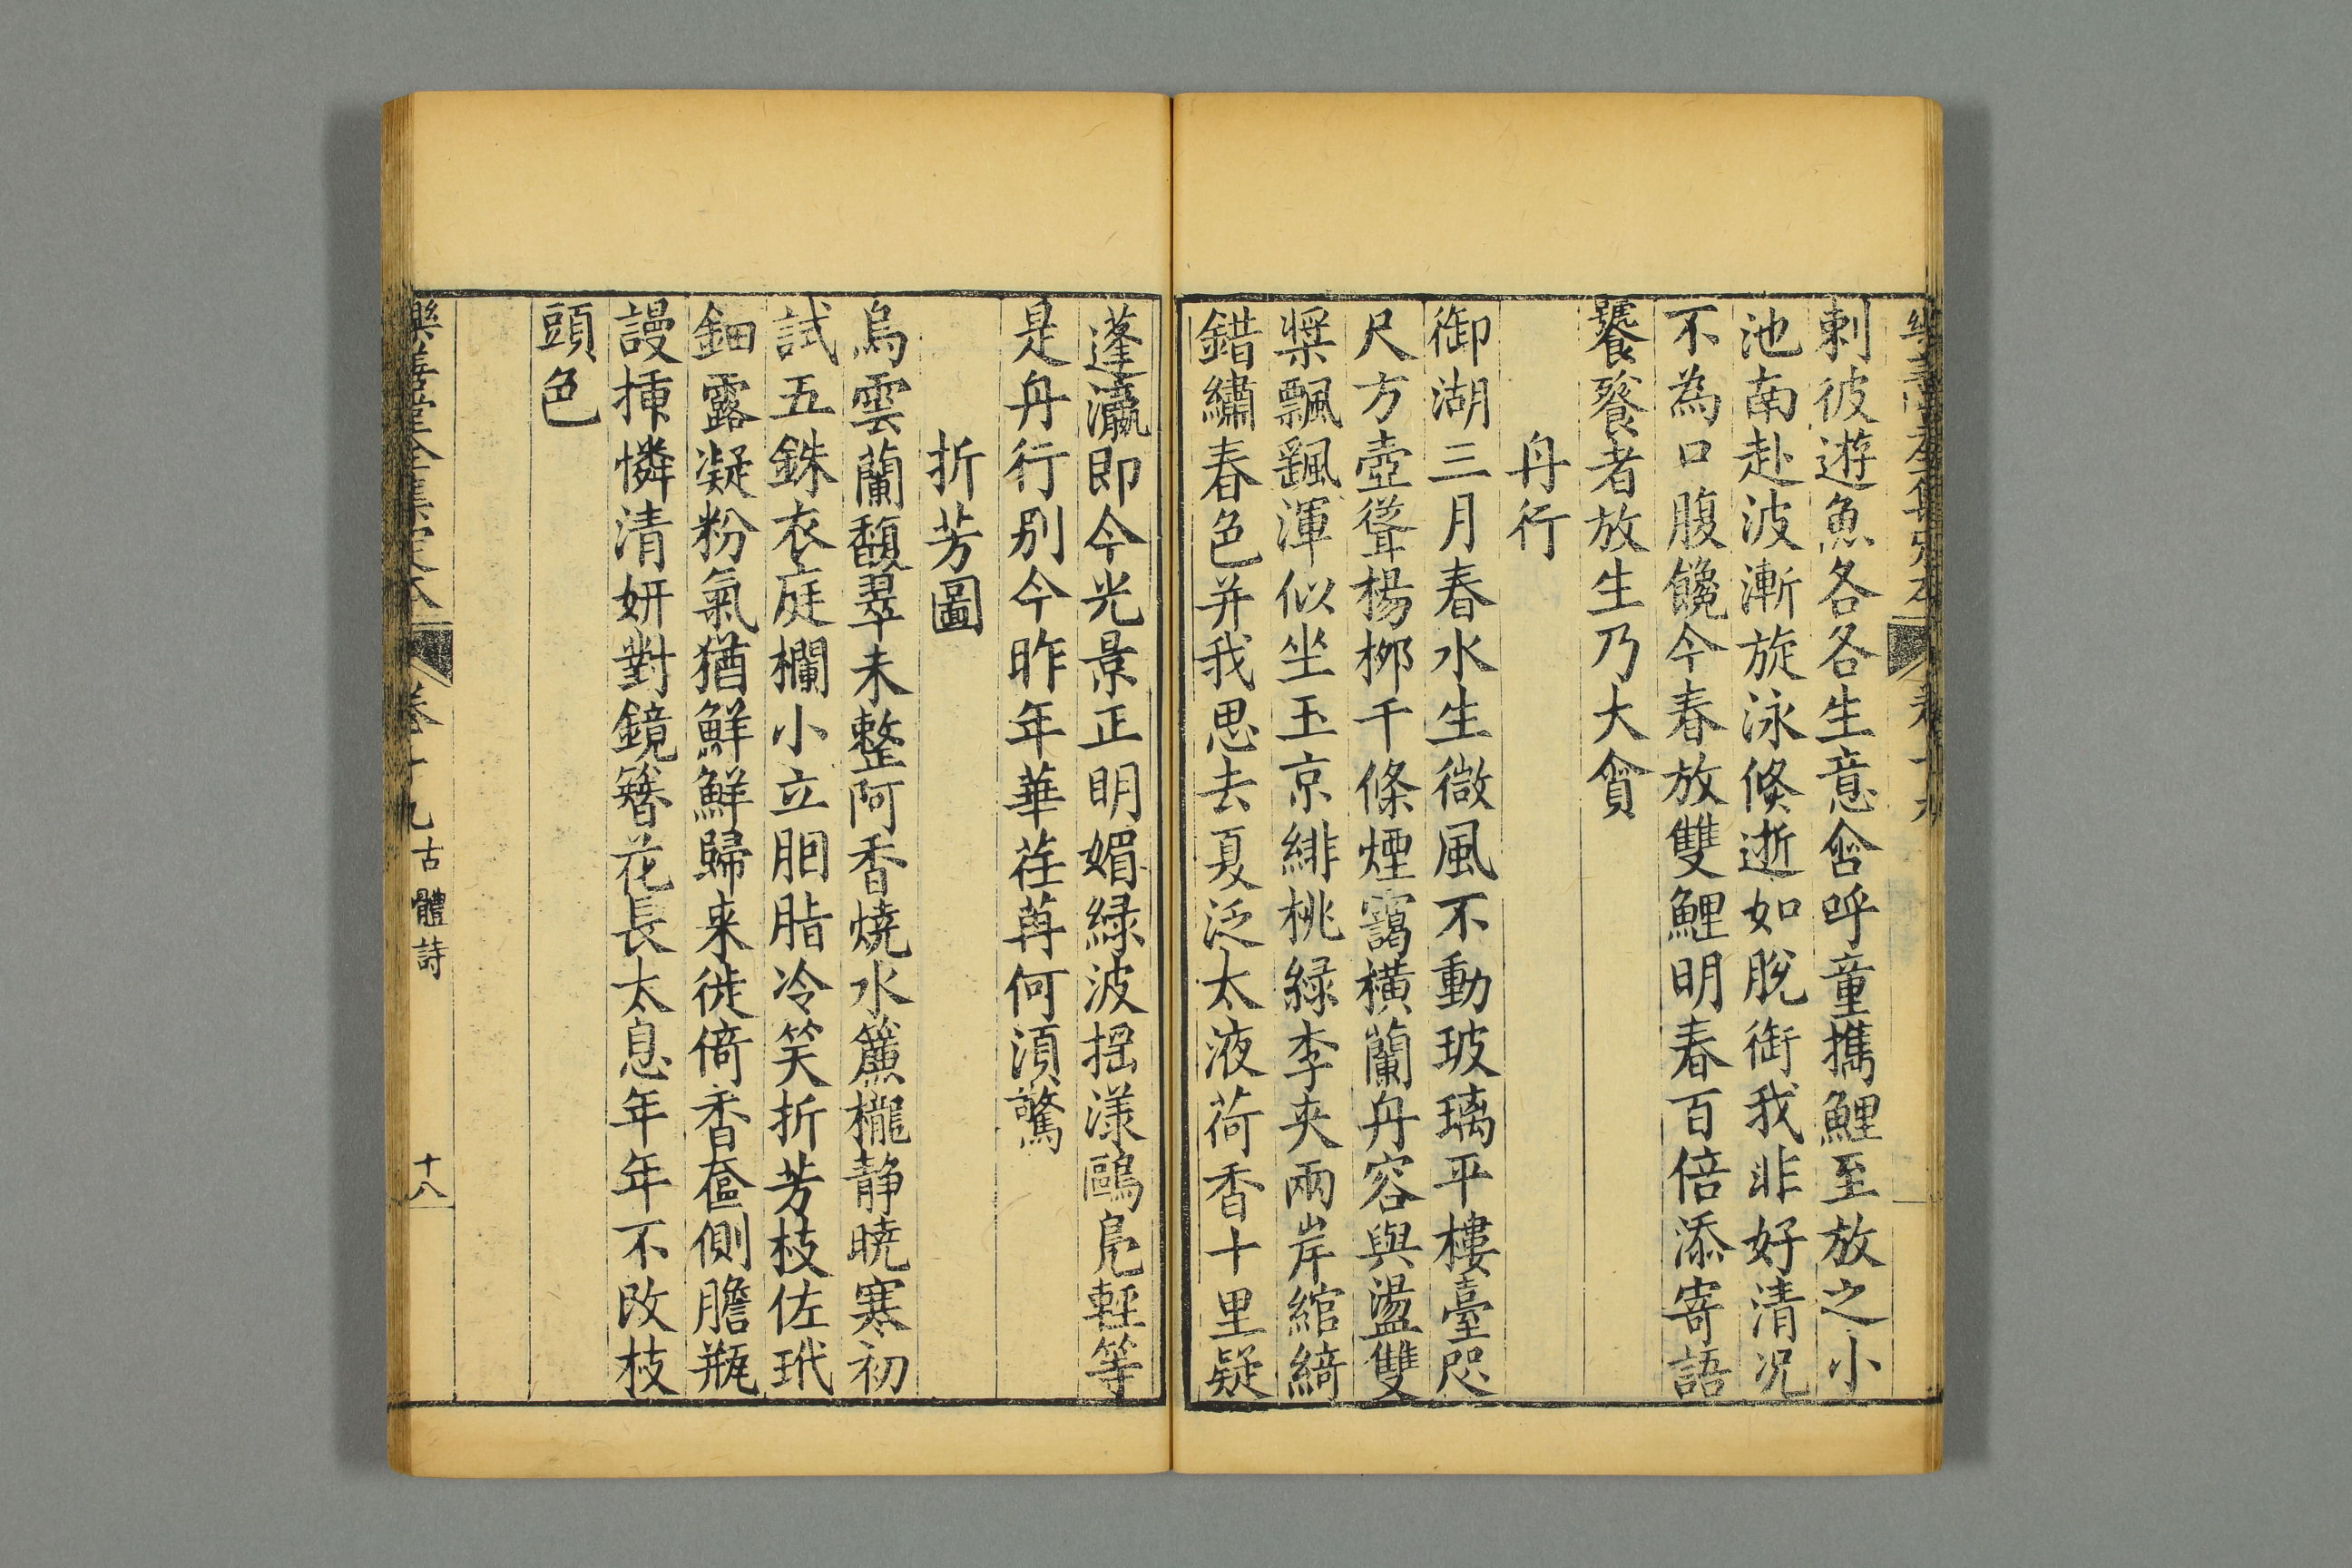 樂善堂全集定本 卷十九
剌彼遊魚各各生意含呼童攜鯉至放之小
池南赴波漸旋泳倐逝如脫銜我非好清况
不為口腹饞今春放雙鯉明春百倍添寄語
饕餮者放生乃大貪
舟行
御湖三月春水生微風不動玻璃平樓臺咫
尺方壺聳楊栁千條煙靄橫蘭舟容與盪雙
槳飄颻渾似坐玉京緋桃緑李夹兩岸綰綺
錯繡春色并我思去夏泛太液荷香十里疑
蓬瀛即今光景正明媚緑波揺漾鷗鳬輕等
是舟行别今昨年華荏苒何湏驚
折芳圖
烏雲蘭馥翠未整阿香燒水簾櫳静曉寒初
試五銖衣庭欄小立胭脂冷笑折芳枝佐玳
鈿露凝粉氣猶鮮鮮歸来徙倚香奩側膽瓶
謾揷憐清妍對鏡簪花長太息年年不改枝
頭色
樂善堂全集定本 卷十九 古體詩 十八